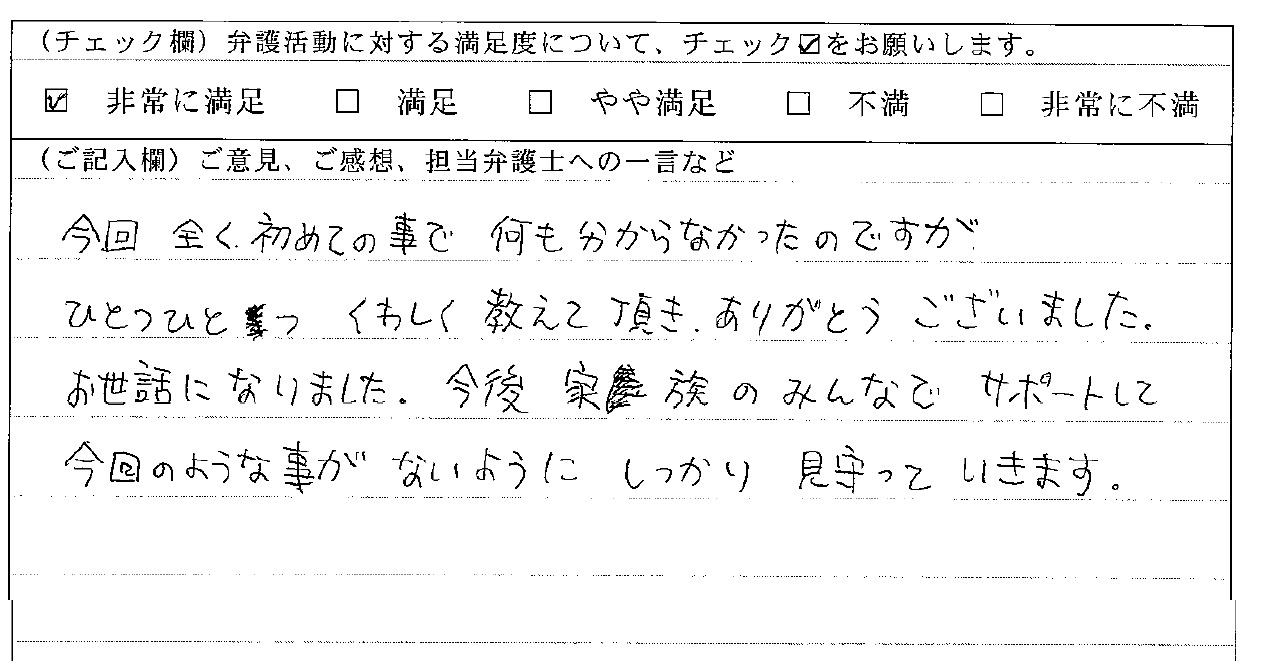 (チェック欄)弁護活動に対する満足度について、チェック☑をお願いします。
☑ 非常に満足 □ 満足 □ やや満足 □ 不満 □ 非常に不満
(ご記入欄)ご意見、ご感想、担当弁護士への一言など
今回 全く初めての事で 何も分からなかったのですが
ひとつひとつ くわしく 教えて 頂き、ありがとう ございました。
お世話に なりました。今後 家族の みんなで サポートして
今回のような事が ないように しっかり 見守って いきます。